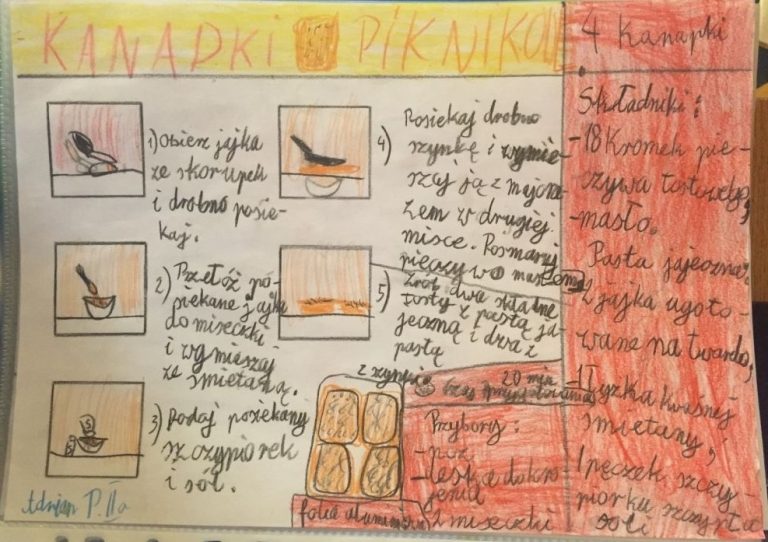 KANADKI PIKNIKOW
4 Kanapki
1) Obierz jajka
ze skorupek
i drobno posie-
kaj.
2) Przełóż po-
piekane jajka
do miseczki
i wymieszaj
ze śmietaną.
3) Dodaj posiekany
szczypiorek
i sól.
4) Posiekaj drobno
szynkę i wymie-
szaj ją z majone
zem w drugiej
misce. Posmaruj
pieczywo masłem
5) Zrób dwa składne
tosty z pastą ja-
jeczną i dwa z
pastą
z szynki
20 min
Czas przygotowania
Przybory:
- nóż
- deska do kro-
jenia
2 miseczki
folia aluminiowa
Składniki:
- 18 Kromek pie-
czywa tostowego,
- masło.
Pasta jajeczna:
2 jajka ugoto-
wane na twardo,
1 łyżka kwaśnej
śmietany,
1 pęczek szczy-
piorku szczypta
soli
Adrian P. IIa